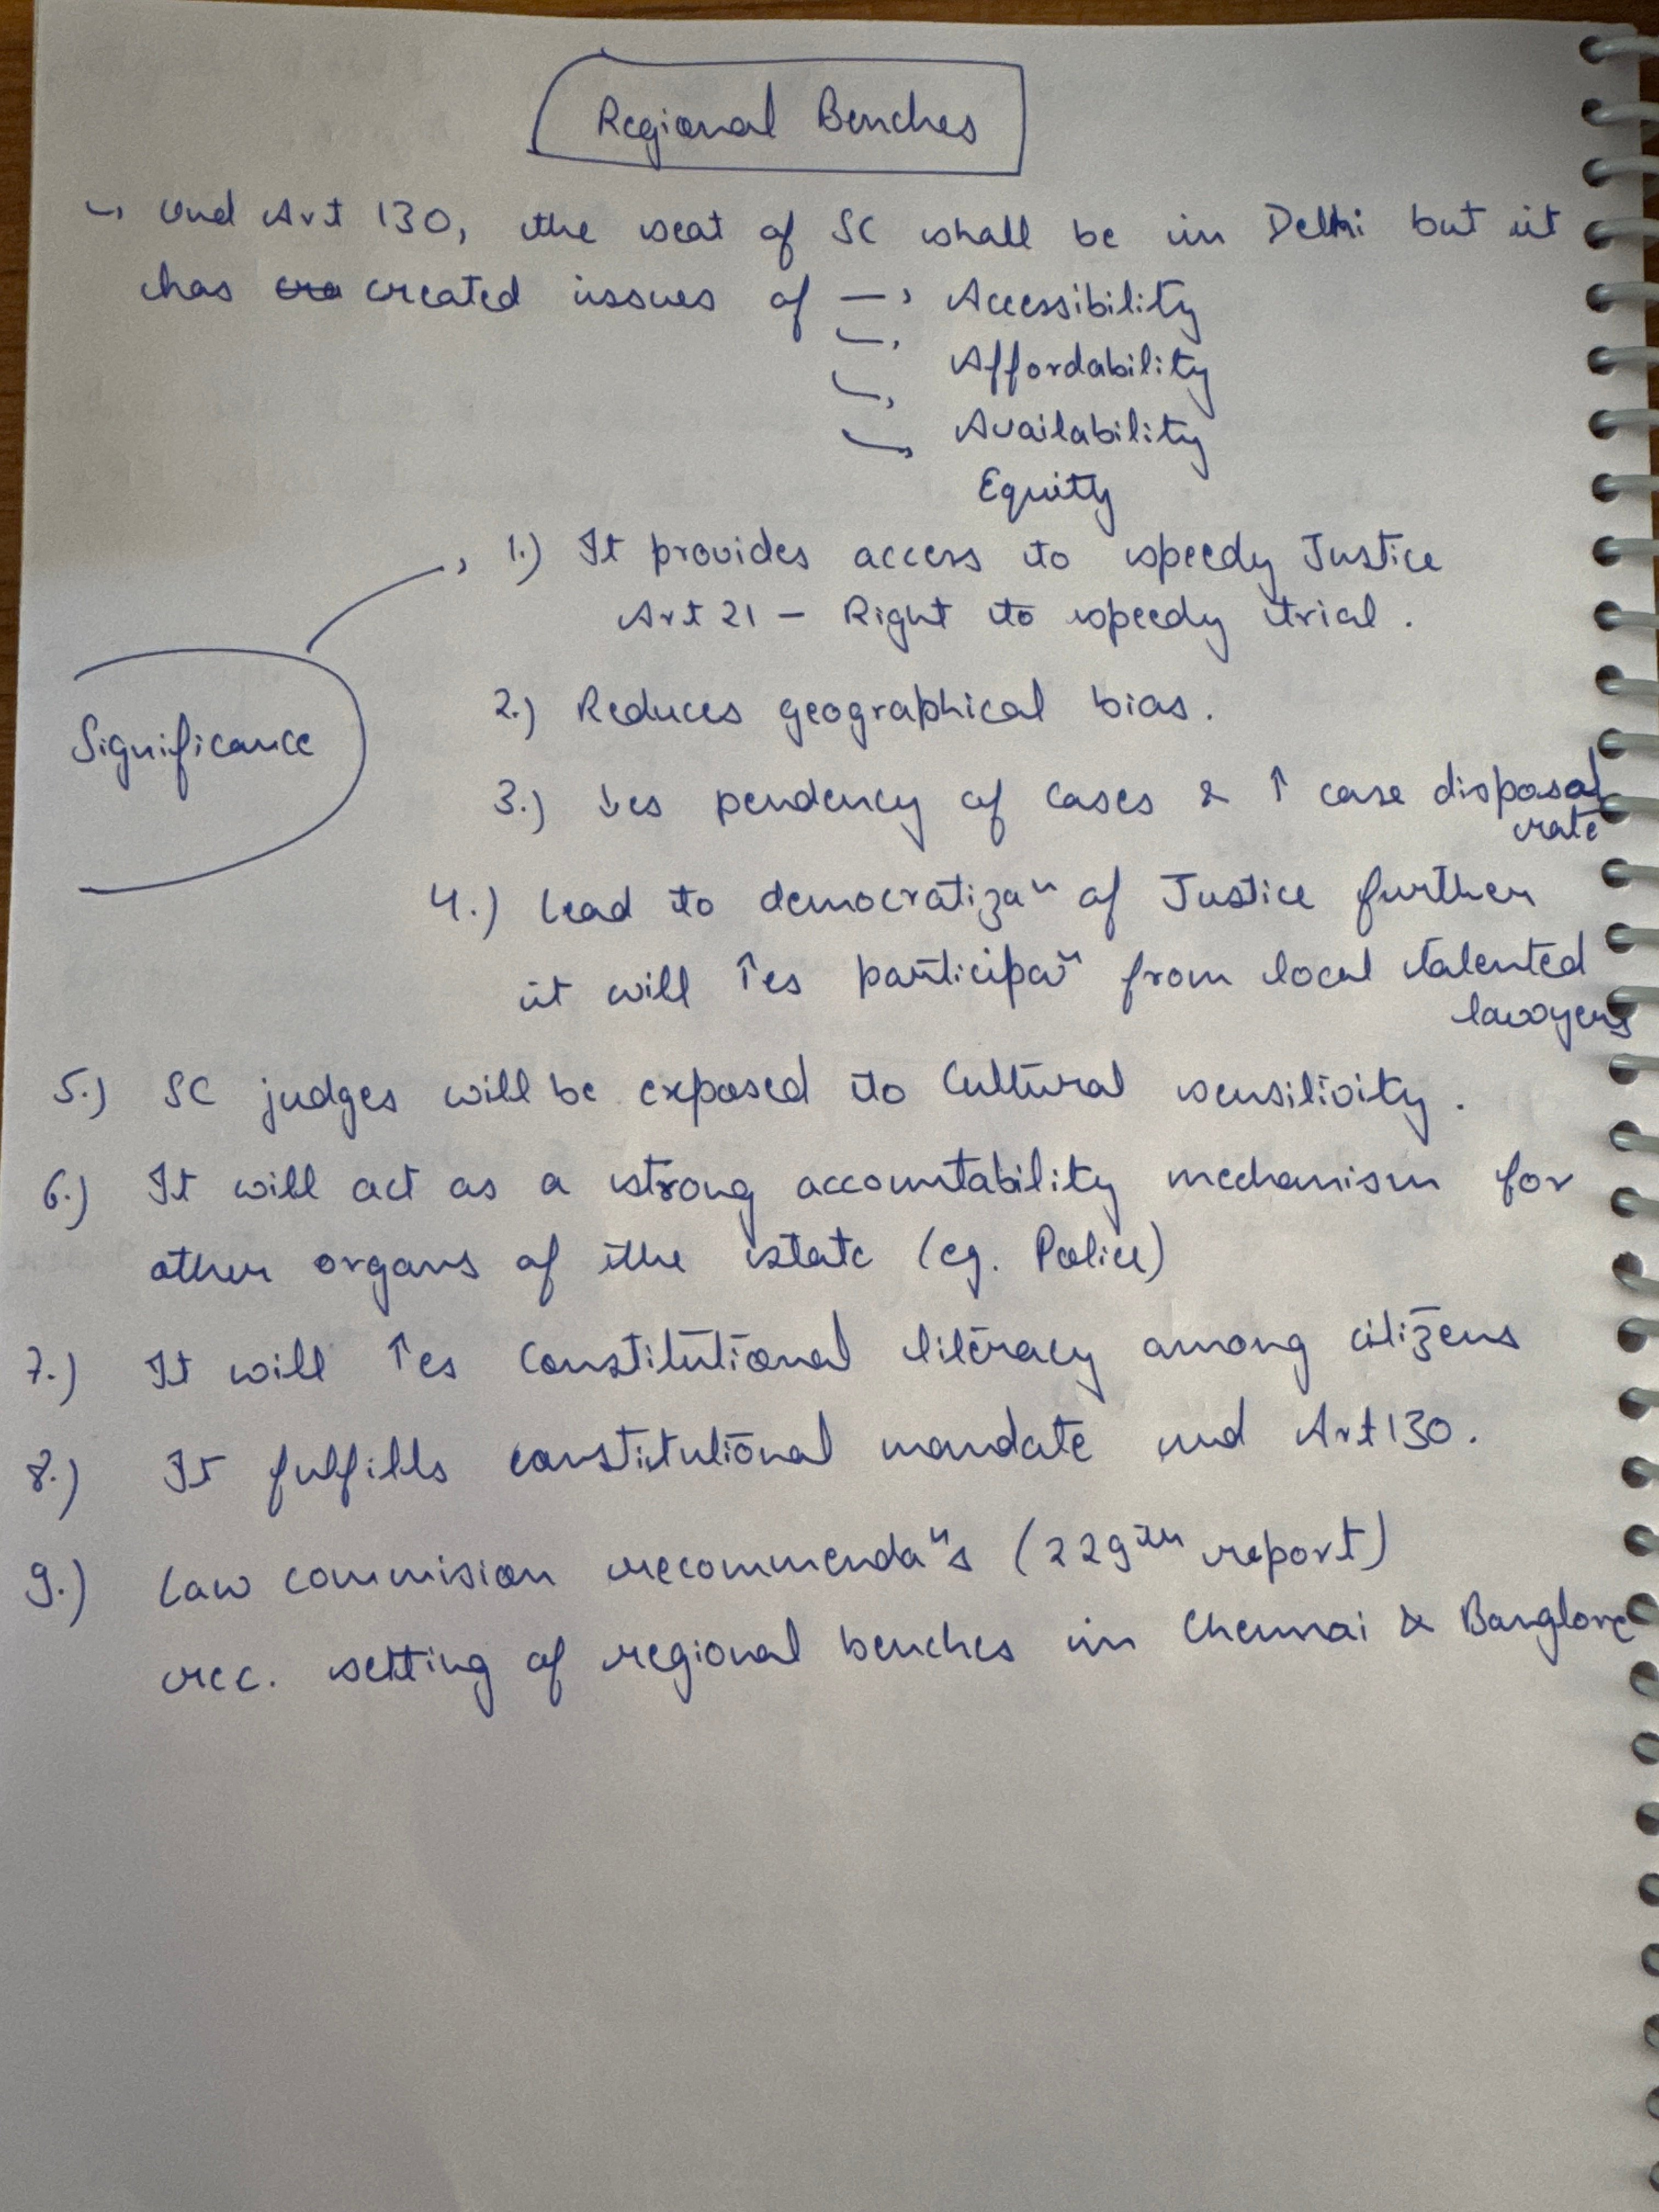 Regional Benches
↳ Und Art 130, the seat of SC shall be in Delhi but it
has created issues of → Accessibility
↳ Affordability
↳ Availability
↳ Equity
1.) It provides access to speedy Justice
Art 21 - Right to speedy trial.
Significance
2.) Reduces geographical bias.
3.) ↓es pendency of cases & ↑ case disposal
rate
4.) Lead to democratizaⁿ of Justice further
it will ↑es participaⁿ from local talented
lawyers
5.) SC judges will be exposed to Cultural sensitivity.
6.) It will act as a strong accountability mechanism for
other organs of the state (eg. Police)
7.) It will ↑es Constitutional literacy among citizens
8.) It fulfills constitutional mandate und Art 130.
9.) Law commision recommendaⁿs (229th report)
rec. setting of regional benches in Chennai & Banglore